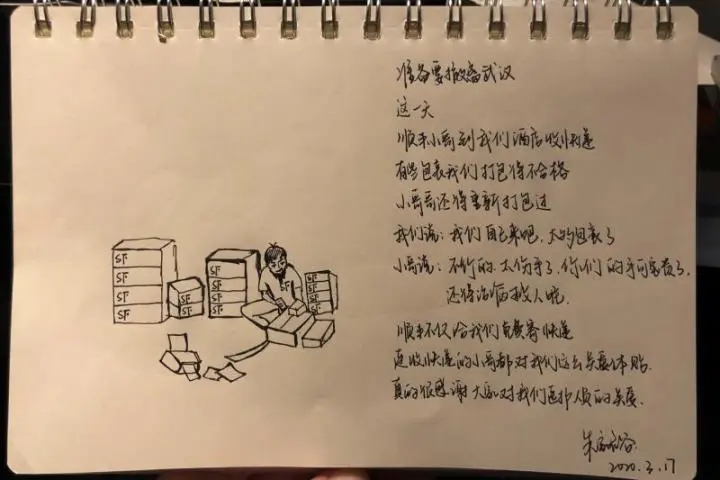 准备要撤离武汉
这一天
顺丰小哥到我们酒店收快递
有些包裹我们打包得不合格
小哥哥还得重新打包过
我们说：我们自己来吧，太多包裹了
小哥说：不行的，太伤手了，你们的手可宝贵了，
还得治病救人呢，
顺丰不仅给我们免费寄快递
连收快递的小哥都对我们这么关爱体贴，
真的很感谢大家对我们医护人员的关爱，
2020.3.17
SF
SF
SF
SF
SF
SF
SF
SF
SF
SF
SF
SF